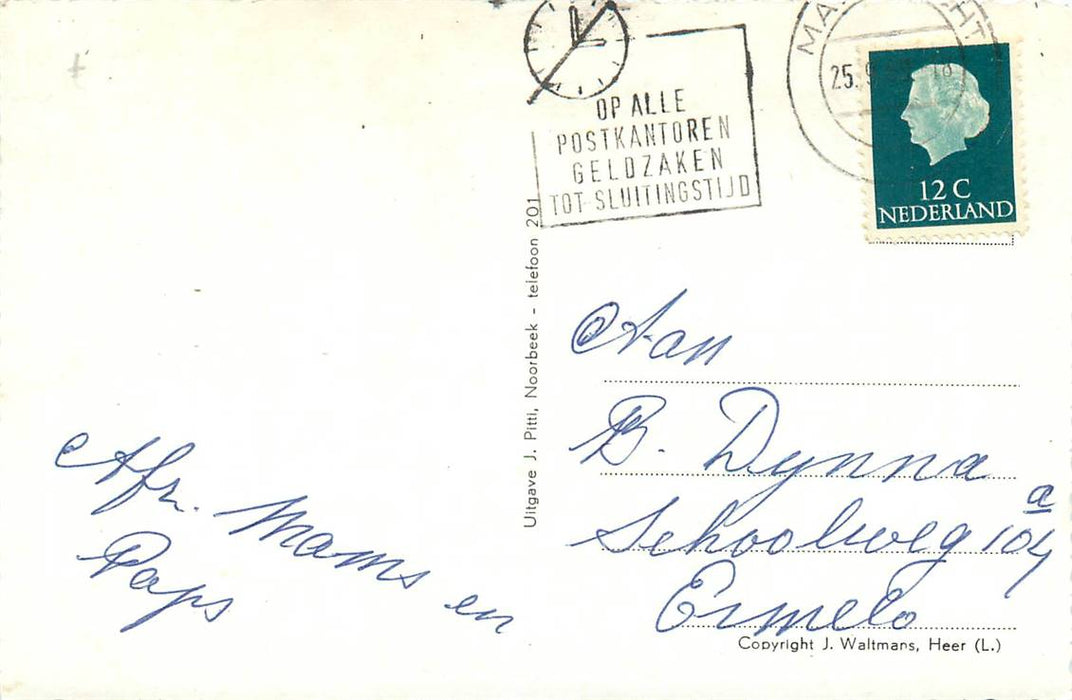 OP ALLE
POSTKANTOREN
GELDZAKEN
TOT SLUITINGSTIJD
25.9
12 C
NEDERLAND
Uitgave J. Pitti, Noorbeek - telefoon 201
Afz. Mams en
Paps
Aan
B. Dynna
Schoolweg 104 a
Ermelo
Copyright J. Waltmans, Heer (L.)